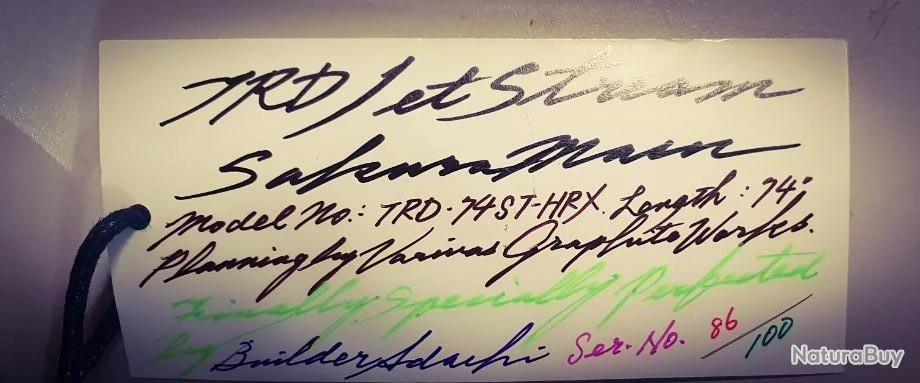 TRD Jet Stream
Sakura Masu
Model No.: TRD-74ST-HRX. Length: 74"
Planning by Varivas Graphite Works.
Finally Specially Perfected
by Builder Adachi Ser. No. 86/100
NaturaBuy